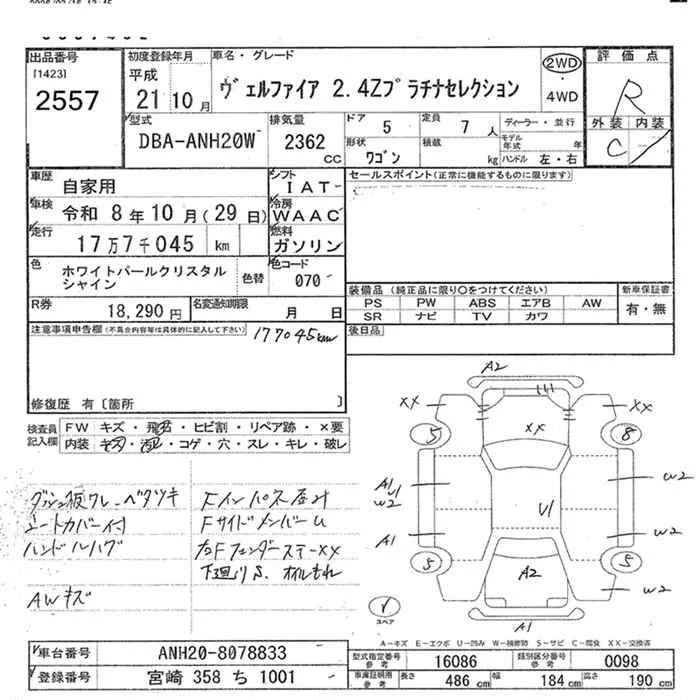 出品番号 初度登録年月 車名・グレード 評価点
[1423] 平成 ヴェルファイア 2.4Zプラチナセレクション 2WD
2557 21 10月 4WD R
型式 排気量 ドア 5 定員 7人 ディーラー・並行 外装 内装
DBA-ANH20W 2362 cc 形状 ワゴン 積載 kg モデル年式 年 ハンドル 左・右 C
車歴 自家用 シフト IAT セールスポイント(正常に機能するものに限ります)
車検 令和 8年10月(29日) 冷房 WAAC
走行 17万7千045 km 燃料 ガソリン
色 ホワイトパールクリスタルシャイン 色替 色コード 070
装備品 (純正品に限り○をつけてください) 新車保証書
PS PW ABS エアB AW 有・無
R券 18,290円 名変通知期限 月 日 SR ナビ TV カワ
注意事項申告欄(不具合内容等は具体的に記入して下さい) 177045km 後日品
修復歴 有〔箇所 〕
検査員記入欄 FW キズ・飛石・ヒビ割・リペア跡・×要
内装 キズ・汚れ・コゲ・穴・スレ・キレ・破レ
A2
XX XX XX
5 8
A1 U1 W2 U1 W2
A1 W2
5 5
A2 W2
A1
スペア
ダッシュ板ワレ ベタツキ
シートカバー付
ハンドルハゲ
AWキズ
Fインパネ
FサイドメンバーU
右FフェンダーステーXX
下廻りS オイルもれ
A-キズ E-エクボ U-凹み W-補修跡 S-サビ C-腐食 XX-交換済
車台番号 ANH20-8078833 型式指定番号 参考 16086 類別区分番号 参考 0098
登録番号 宮崎 358 ち 1001 車庫証明用 参考 長さ 486 cm 幅 184 cm 高さ 190 cm